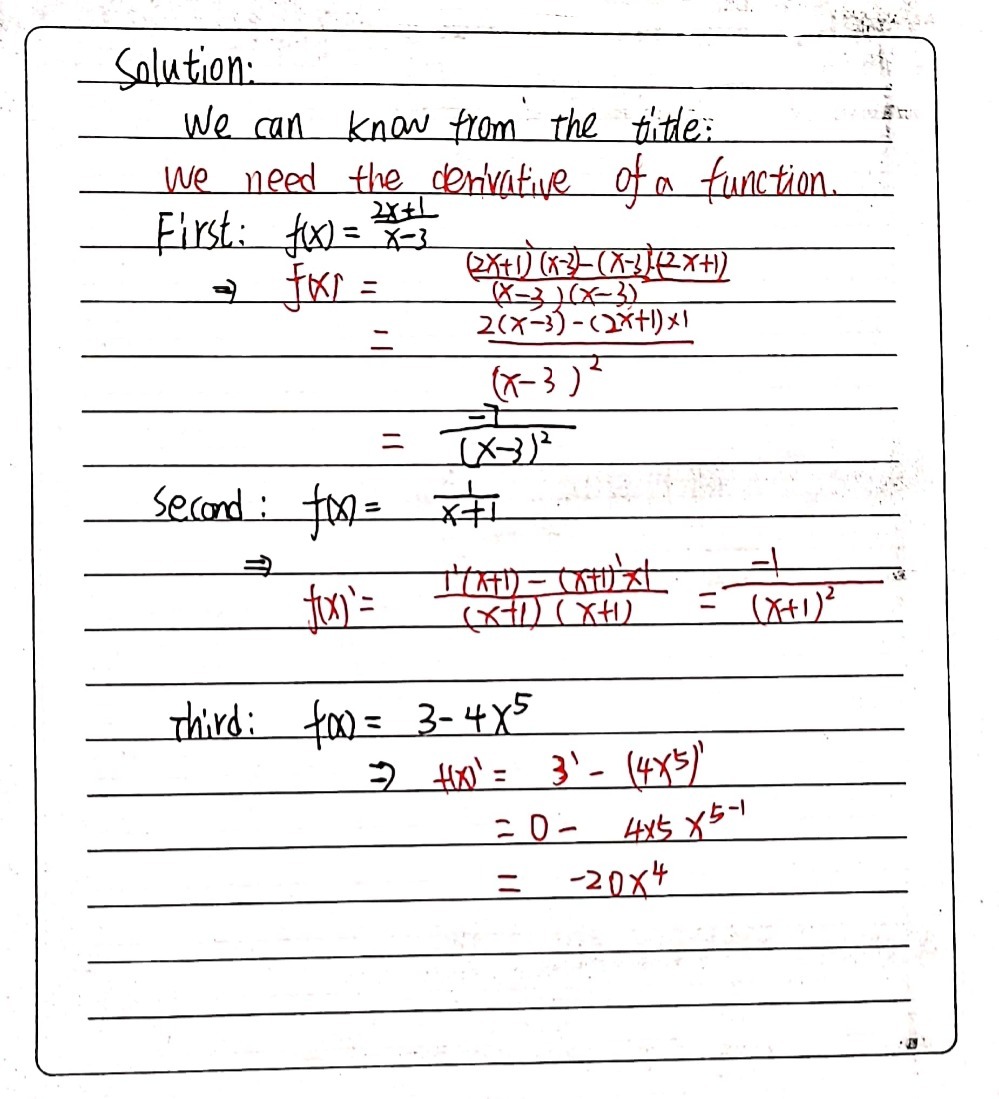 Solution:
We can know from the title:
We need the derivative of a function.
First: f(x) = (2x+1)/(x-3)
⇒ f(x)' = ((2x+1)'(x-3)-(x-3)'(2x+1))/((x-3)(x-3))
= (2(x-3)-(2x+1)×1)/(x-3)²
= -7/(x-3)²
Second: f(x) = 1/(x+1)
⇒
f(x)' = (1'(x+1)-(x+1)'×1)/((x+1)(x+1)) = -1/(x+1)²
Third: f(x) = 3-4x⁵
⇒ f(x)' = 3' - (4x⁵)'
= 0 - 4×5 x⁵⁻¹
= -20x⁴